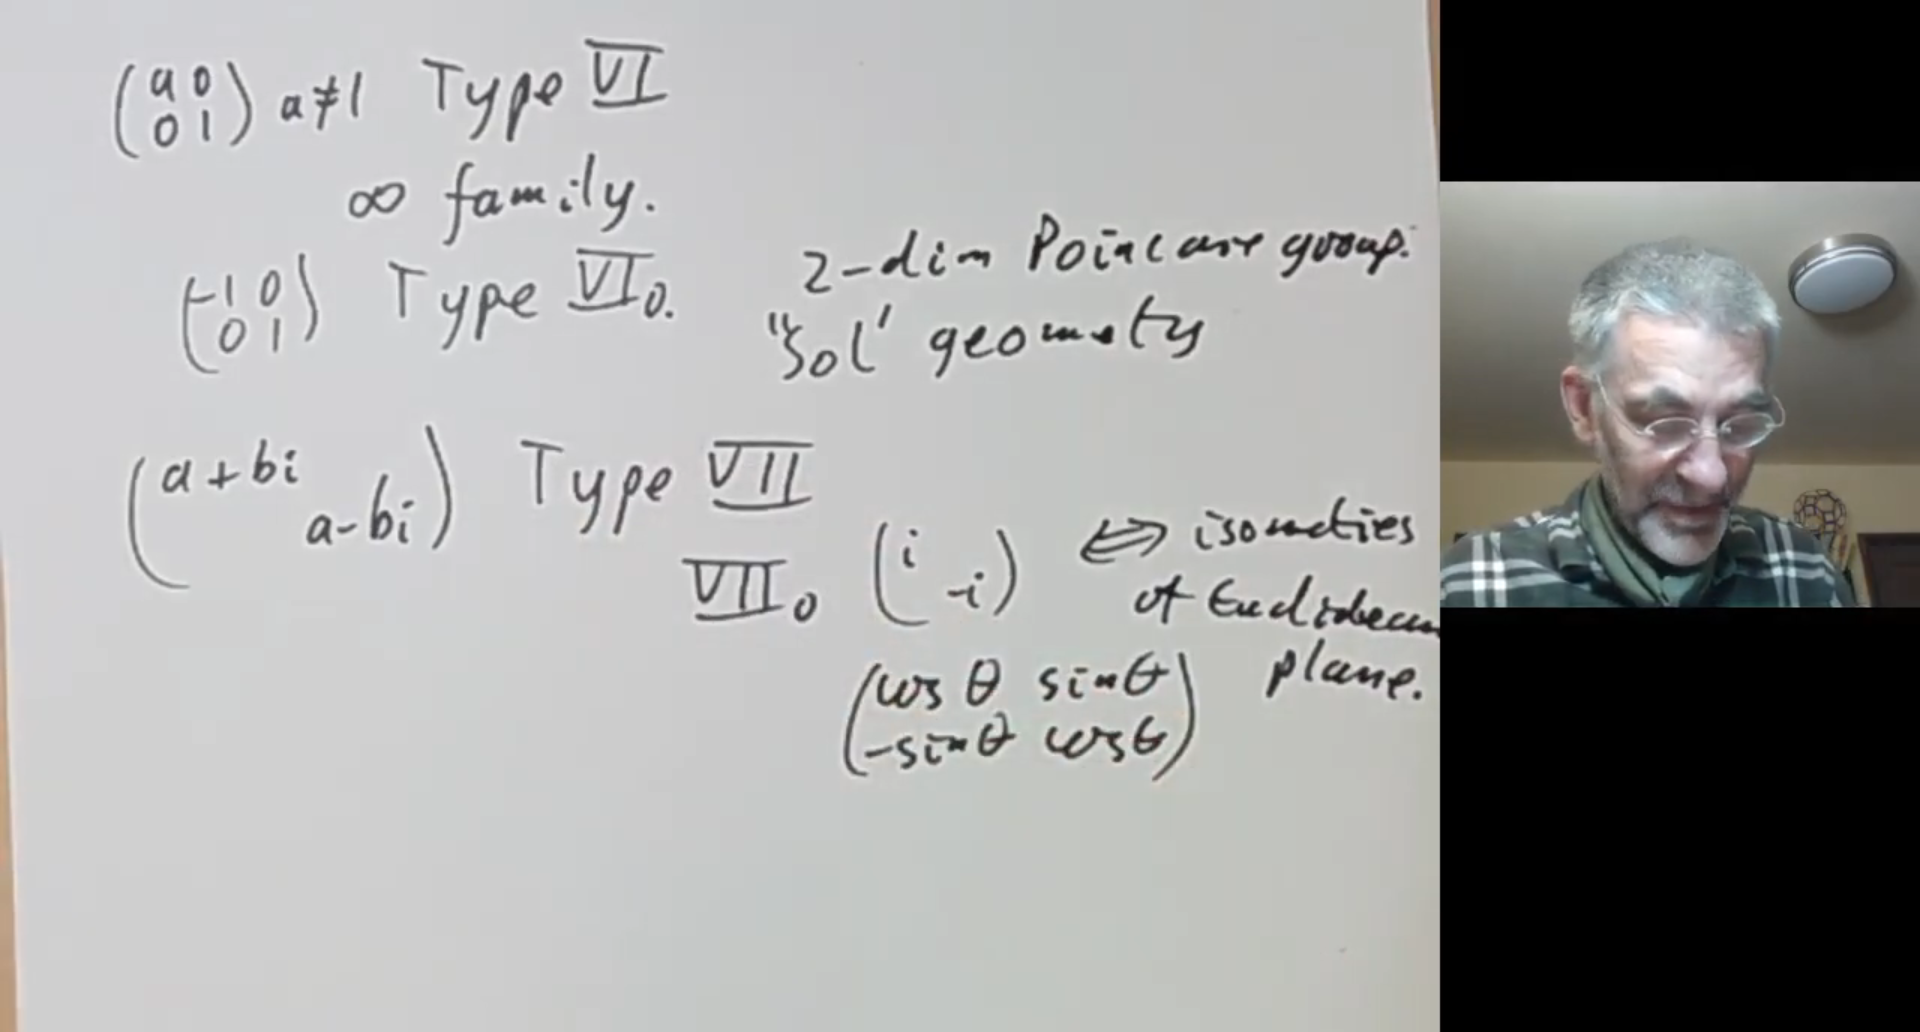 (a 0
0 1) a≠1 Type VI
∞ family.
(-1 0
0 1) Type VI₀.
2-dim Poincare group.
"Sol" geometry
(a+bi
a-bi) Type VII
VII₀ (i
-i) ⟺ isometries
of Euclidean
plane.
(cos θ sin θ
-sin θ cos θ)